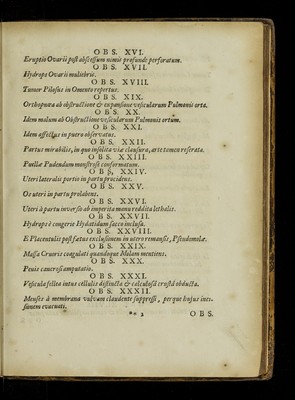 OBS. XVI.
Eruptio Ovarii post abscessum nimis profunde perforatum.
OBS. XVII.
Hydrops Ovarii muliebris.
OBS. XVIII.
Tumor Pilosus in Omento repertus.
OBS. XIX.
Orthopnœa ab obstructione & expansione vesicularum Pulmonis orta.
OBS. XX.
Idem malum ab Obstructione vesicularum Pulmonis ortum.
OBS. XXI.
Idem affectus in puero observatus.
OBS. XXII.
Partus mirabilis, in quo insolita viæ clausura, arte tamen reserata.
OBS. XXIII.
Puellæ Pudendum monstrose conformatum.
OBS. XXIV.
Uteri lateralis portio in partu procidens.
OBS. XXV.
Os uteri in partu prolabens.
OBS. XXVI.
Uteri à partu inversio ab imperita manu reddita lethalis.
OBS. XXVII.
Hydrops è congerie Hydatidum sacco inclusa.
OBS. XXVIII.
E Placentulis post fœtus exclusionem in utero remansis, Pseudomolæ.
OBS. XXIX.
Massa Cruoris coagulati quandoque Molam mentiens.
OBS. XXX.
Penis cancrosi amputatio.
OBS. XXXI.
Vesicula fellea intus cellulis distincta & calculosâ crustâ obducta.
OBS. XXXII.
Menses à membrana vulvam claudente suppressi, perque hujus inci-
sionem evacuati.
** 2 OBS.